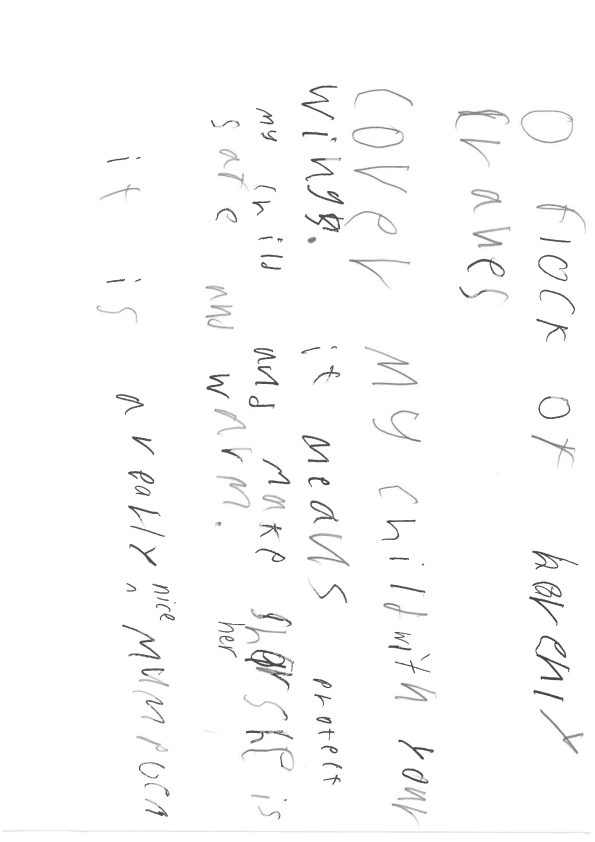 O flock of harenly
cranes
cover my child with your
wings. it means protect
my child and make she is
her
safe and warm.
it is a really nice